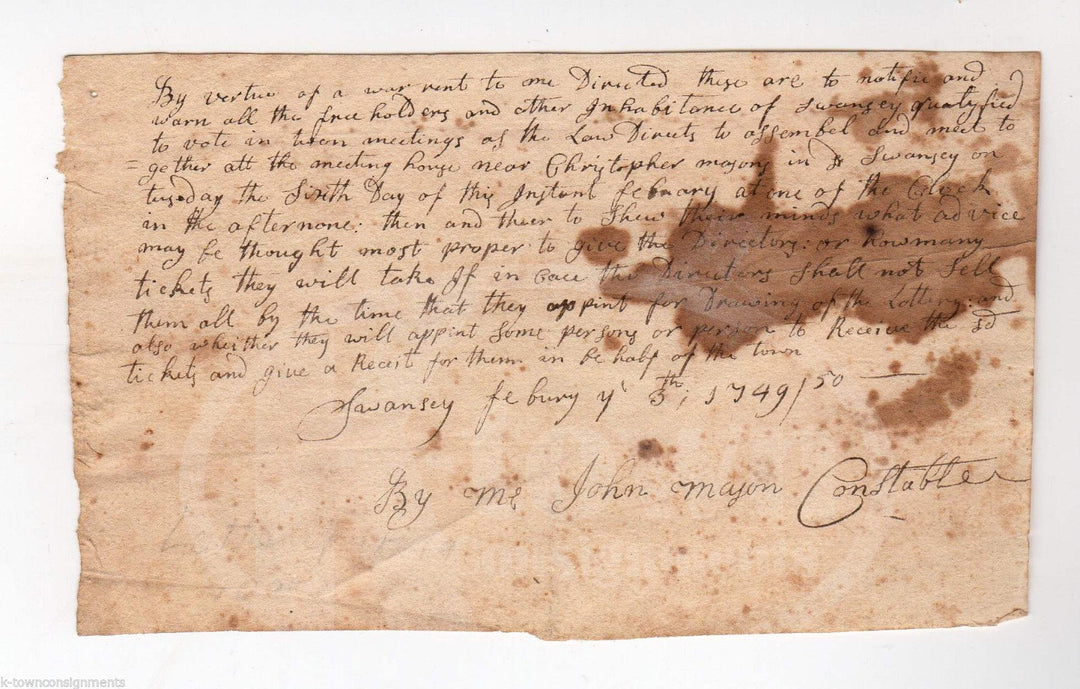 By vertue of a warrent to me Directed these are to notifie and
warn all the free holders and other Inhabitance of Swansey qualyfied
to vote in town meetings as the Law Directs to assembel and meet to
= gether att the meeting house near Christopher masons in sd Swansey on
tusday the Sixth Day of this Instant february at one of the Clock
in the afternone: then and theer to Shew their minds what advice
may be thought most proper to give the Directory: or how many
tickets they will take If in case the Directers shall not Sell
them all by the time that they appint for Drawing of the Lottery: and
also whether they will appint some persons or person to Receive the sd
tickets and give a Receit for them in be half of the town
Swansey febury ye 3th; 1749/50
By me John mason Constable
k-townconsignments